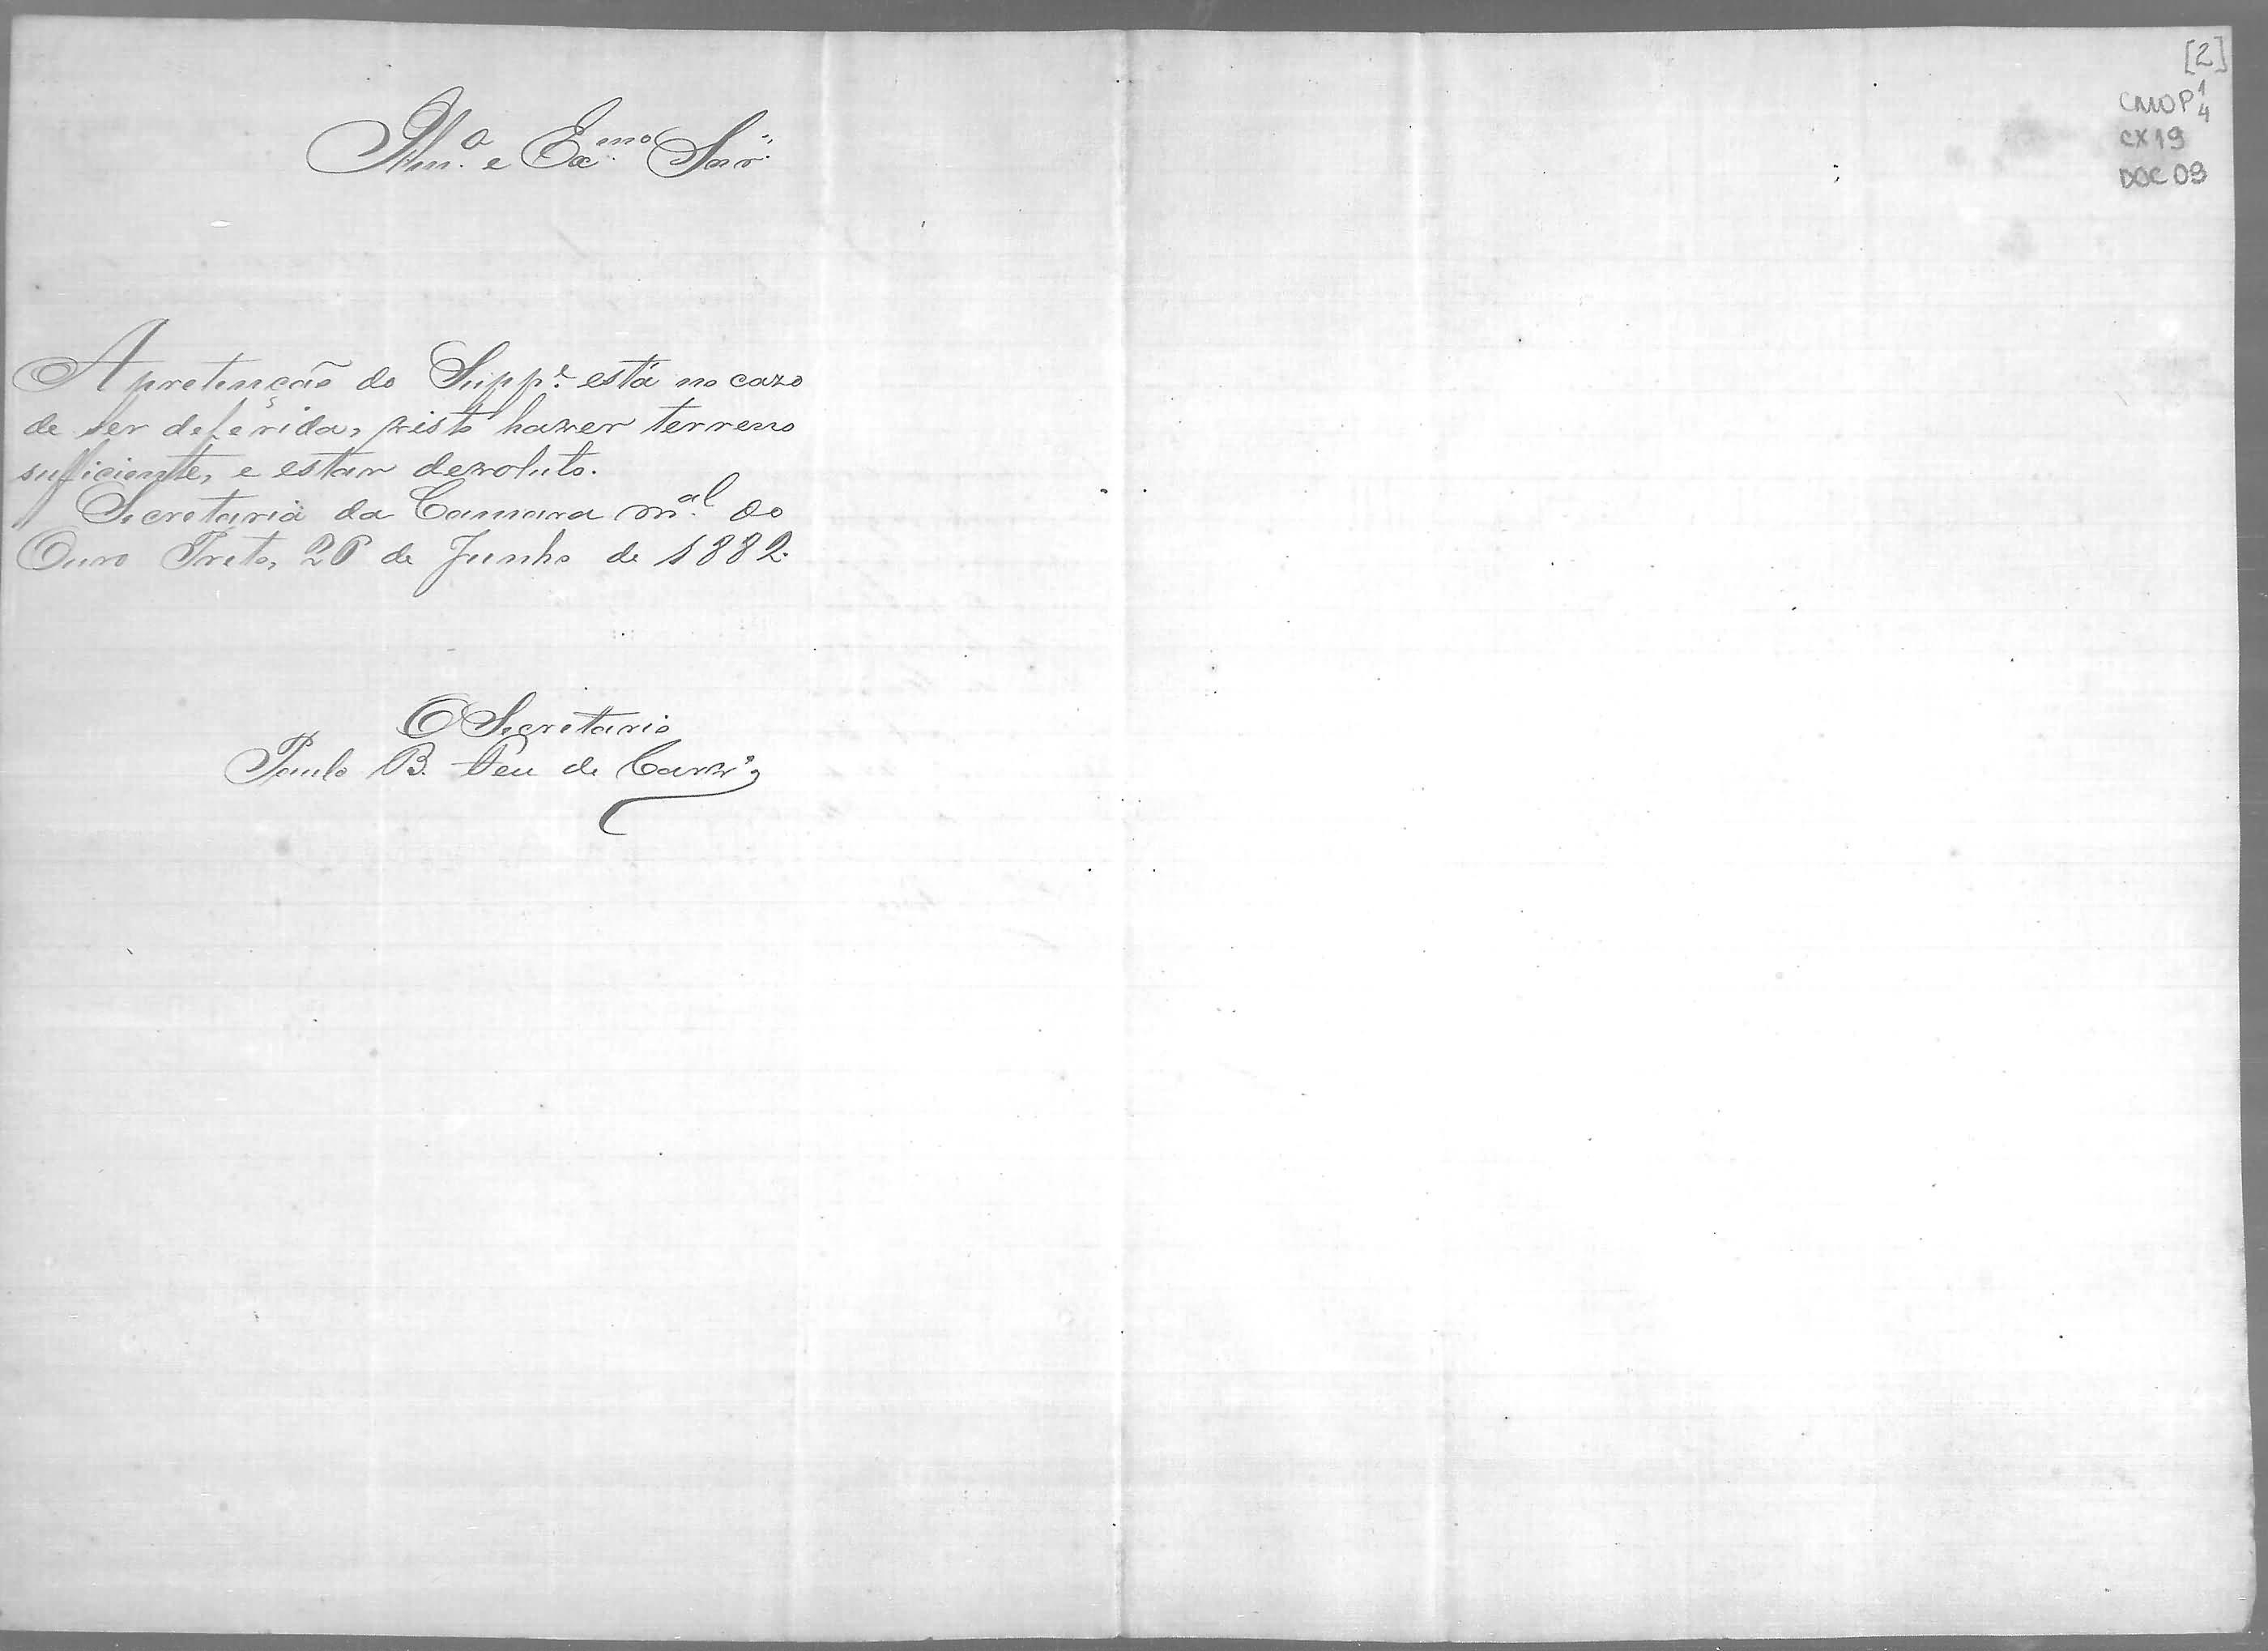 Illm.º e Exmo. Snr.
A pretenção do Suppe. está no cazo
de ser deferida, visto haver terreno
sufficiente, e estar devoluto.
Secretaria da Camara m.al do
Ouro Preto, 26 de Junho de 1882.
O Secretario
Paulo B. de Carvº
[2]
CMOP 1/4
CX 19
DOC 09